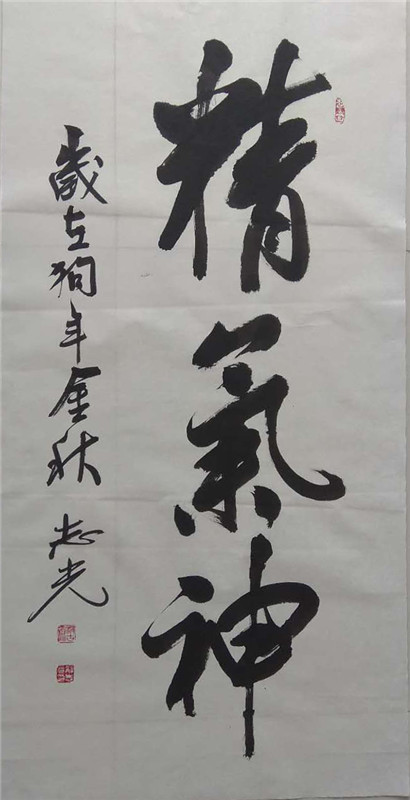 精氣神
歲在狗年金秋 志光